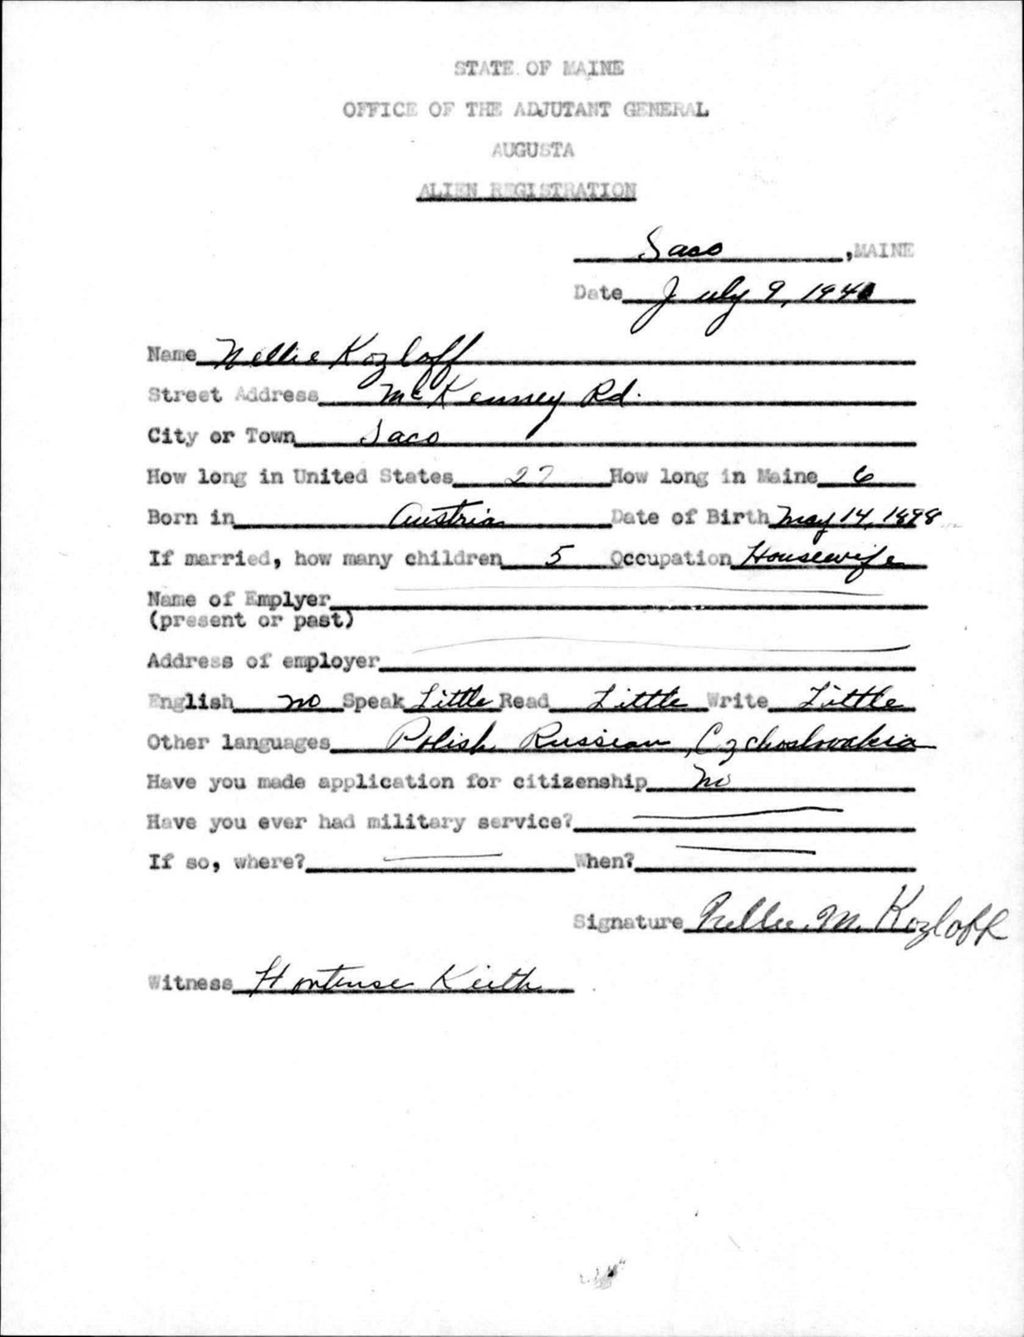 STATE OF MAINE
OFFICE OF THE ADJUTANT GENERAL
AUGUSTA
ALIEN REGISTRATION
Saco, MAINE
Date July 9, 1940
Name Nellie Kozloff
Street Address McKenney Rd.
City or Town Saco
How long in United States 27 How long in Maine 6
Born in Austria Date of Birth May 14, 1898
If married, how many children 5 Occupation Housewife
Name of Emplyer
(present or past)
Address of employer
English no Speak Little Read Little Write Little
Other languages Polish, Russian, Czchoslovakia
Have you made application for citizenship no
Have you ever had military service?
If so, where? When?
Signature Nellie M. Kozloff
Witness Hortense Keith